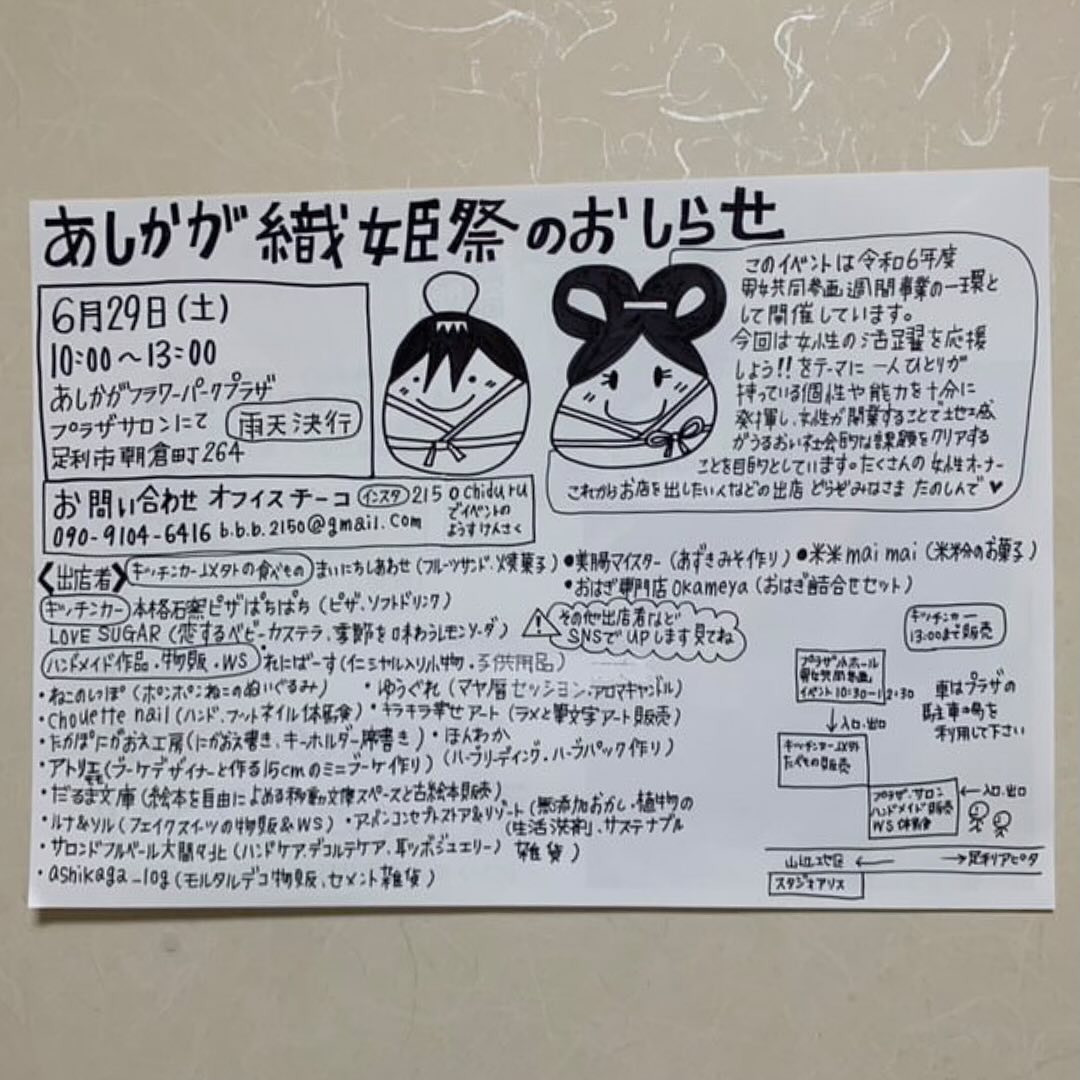 あしかが織姫祭のおしらせ
6月29日(土)
10:00〜13:00
あしかがフラワーパークプラザ
プラザサロンにて 雨天決行
足利市朝倉町264
お問い合わせ オフィスチーコ インスタ 215o chiduru
でイベントの
ようすけんさく
090-9104-6416 b.b.b.2150@gmail.com
このイベントは令和6年度
男女共同参画週間事業の一環と
して開催しています。
今回は女性の活躍を応援
しよう!!をテーマに 一人ひとりが
持っている個性や能力を十分に
発揮し、女性が開業することで地域
がうるおい社会的な課題をクリアする
ことを目的としています。たくさんの女性オーナー
これからお店を出したい人などの出店 どうぞみなさま たのしんで♥
《出店者》 キッチンカー以外の食べもの まいにちしあわせ(フルーツサンド、焼菓子) ●美腸マイスター(あずきみそ作り) ●米米mai mai(米粉のお菓子)
●おはぎ専門店Okameya(おはぎ詰合せセット)
キッチンカー 本格石窯ピザぱちぱち(ピザ、ソフトドリンク)
LOVE SUGAR(恋するベビーカステラ、季節を味わうレモンソーダ)
その他出店者など
SNSでUPします見てね
ハンドメイド作品・物販・WS れにばーす(イニシャル入り小物・子供用品)
・ねこのしっぽ(ポンポンねこのぬいぐるみ) ・ゆうぐれ(マヤ暦セッション、アロマキャンドル)
・chouette nail(ハンド、フットネイル体験) ・キラキラ幸せアート(ラメと筆文字アート販売)
・たかぽにがおえ工房(にがおえ書き、キーホルダー席書き) ・ほんわか
(ハーブリーディング・ハーブパック作り)
・アトリエ(ブーケデザイナーと作る15cmのミニブーケ作り)
・だるま文庫(絵本を自由によめる移動文庫スペースと古絵本販売)
・ルナ&ソル(フェイクスイーツの物販&WS) ・アーバンコンセプトストア&リゾート(無添加おかし・植物の
(生活洗剤)、サステナブル
雑貨)
・サロンドフルベール大間々北(ハンドケア、デコルテケア、耳ツボジュエリー)
・ashikaga_log(モルタルデコ物販、セメント雑貨)
キッチンカー
13:00まで販売
プラザ小ホール
男女共同参画
イベント10:30-12:30
車はプラザの
駐車場を
利用して下さい
↓入口、出口
キッチンカー以外
たべもの販売
プラザ、サロン
ハンドメイド販売
WS体験
←入口、出口
山辺地区 ← →足利アピタ
スタジオアリス